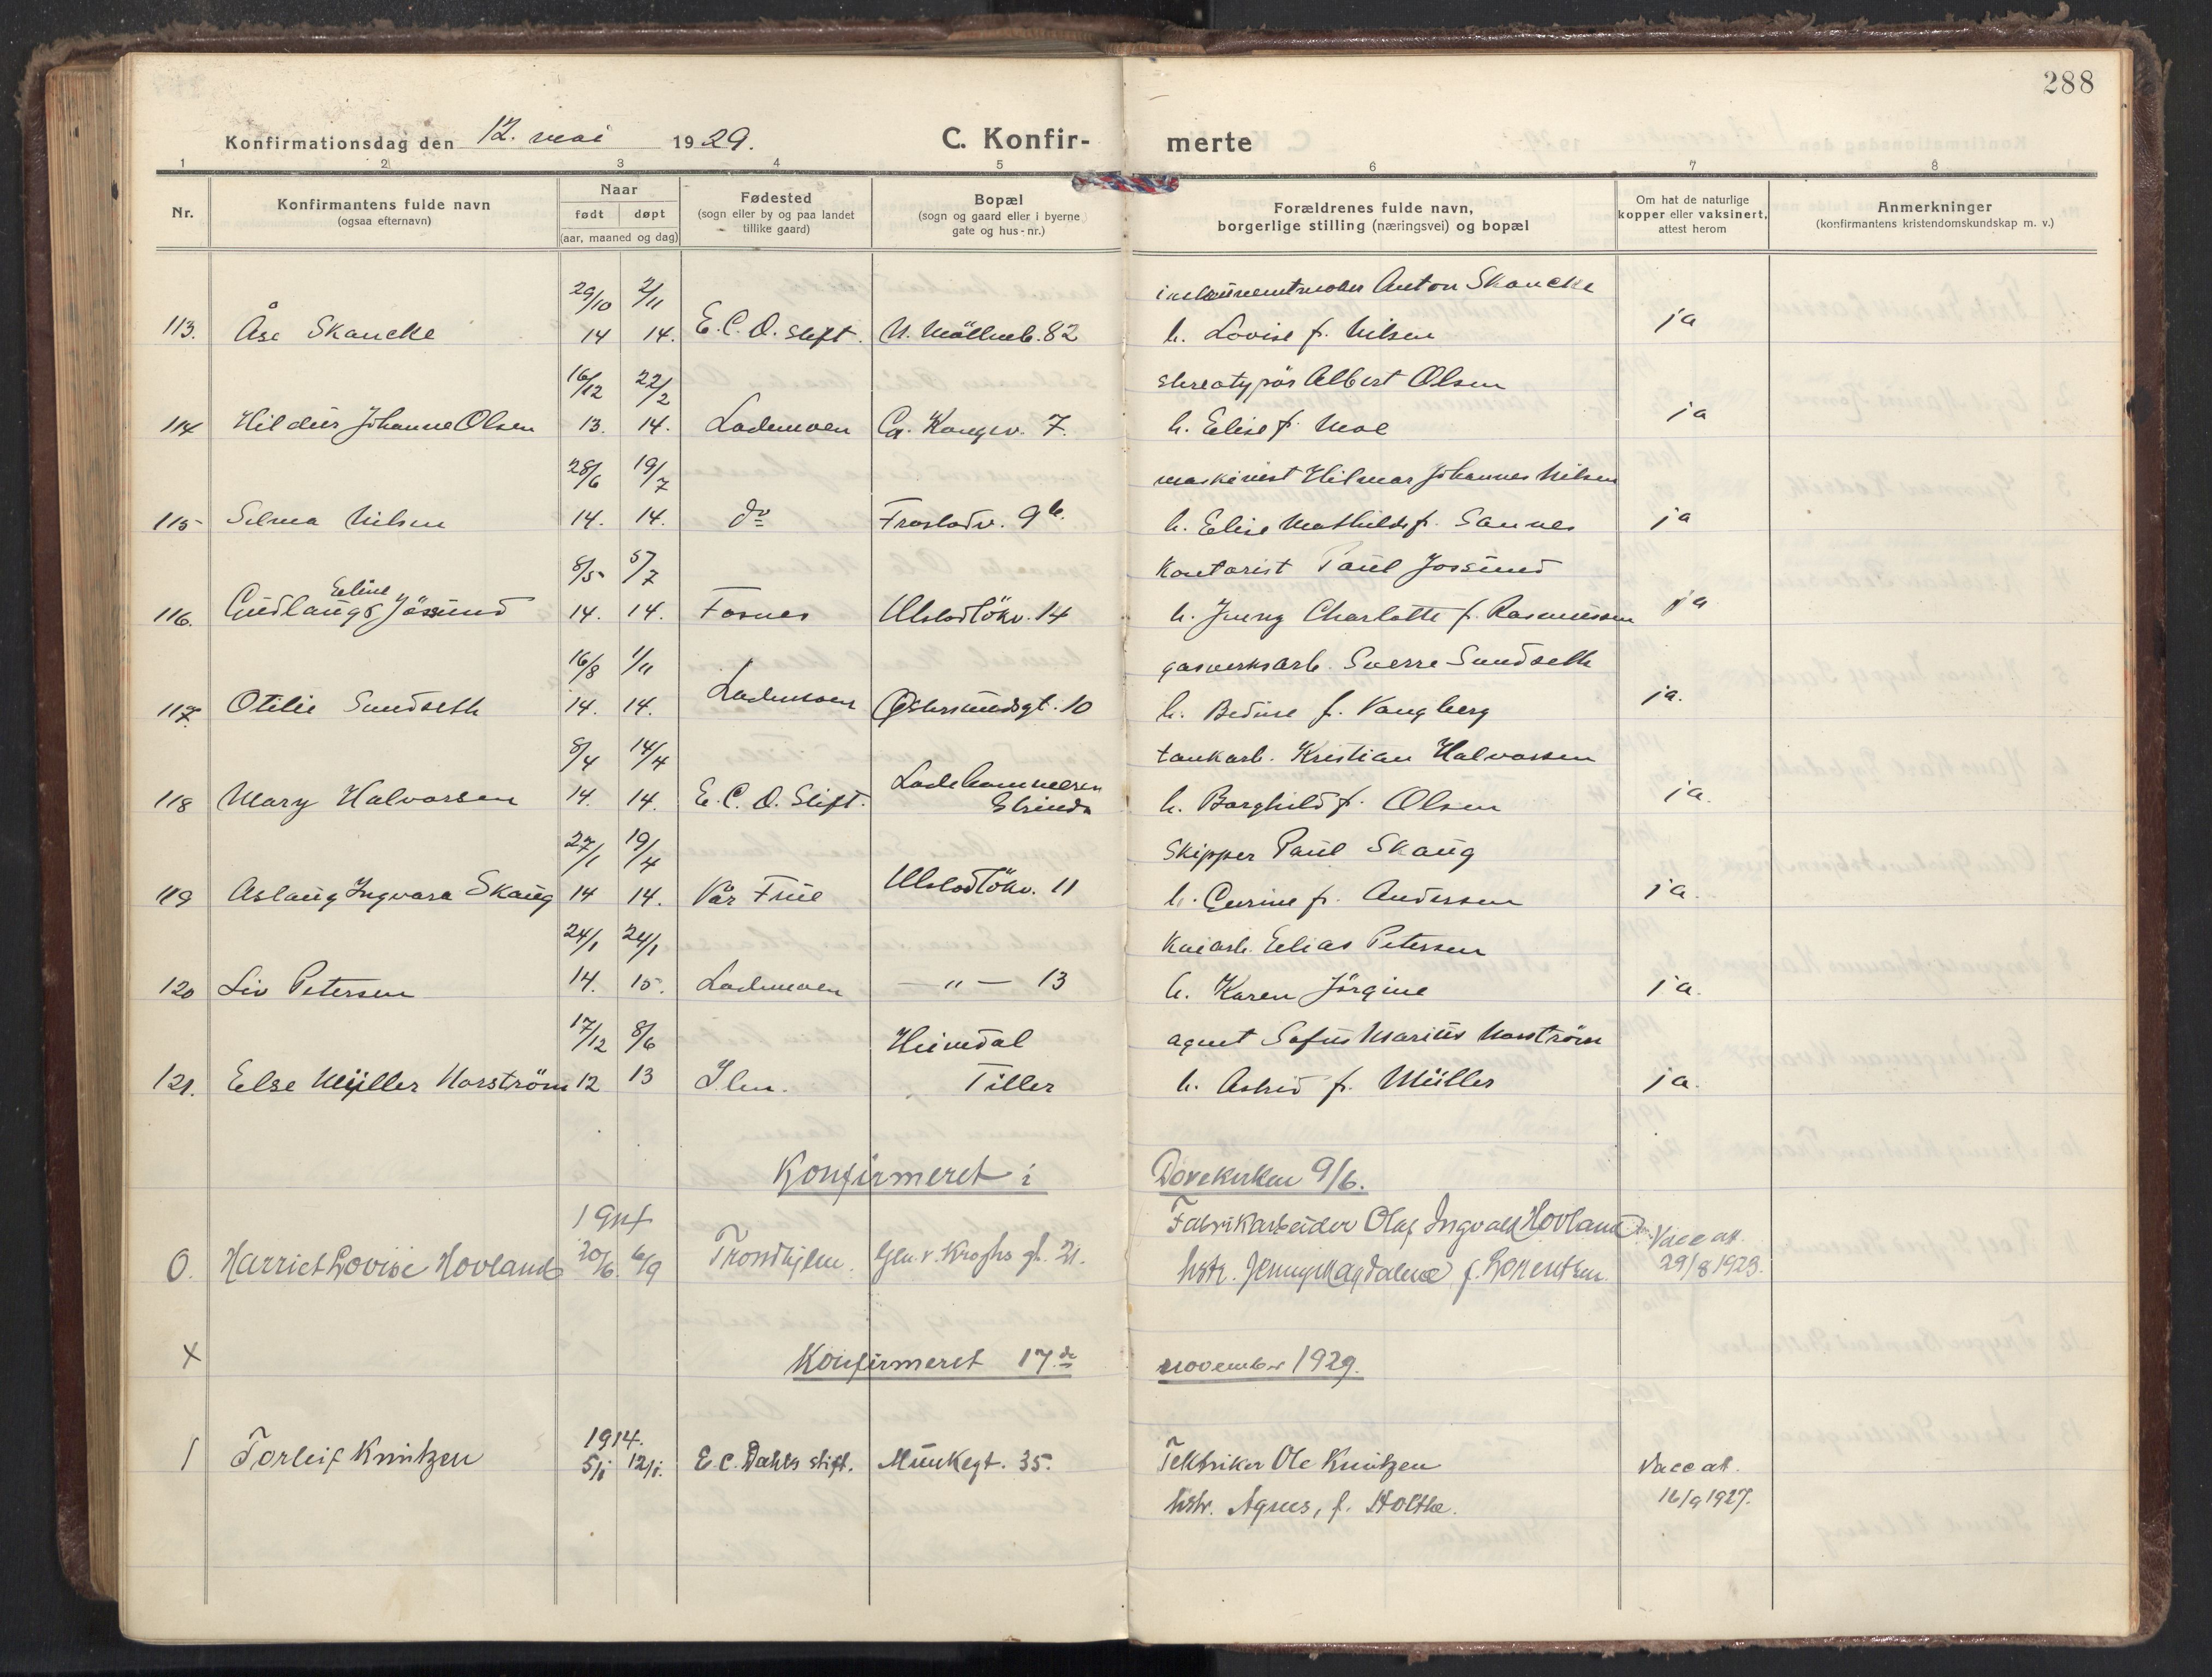 288
Konfirmationsdag den 12. mai 1929. C. Konfirmerte
1 2 3 4 5 6 7 8
Nr.
Konfirmantens fulde navn
(ogsaa efternavn)
Naar
født døpt
(aar, maaned og dag)
Fødested
(sogn eller by og paa landet
tillike gaard)
Bopæl
(sogn og gaard eller i byerne
gate og hus-nr.)
Forældrenes fulde navn,
borgerlige stilling (næringsvei) og bopæl
Om hat de naturlige
kopper eller vaksinert,
attest herom
Anmerkninger
(konfirmantens kristendomskundskap m. v.)
29/10 2/11 Anton Skancke
113. Åse Skancke 14 14. E.C.D. Stift. N. Møllenb. 82 h. Lovise f. Nilsen ja
16/12 22/2 stereotypør Albert Olsen
114 Hildur Johanne Olsen 13. 14. Lademoen Ca. Kongev. 7. h. Elise f. Moe ja
28/6 19/7 maskinist Hilmar Johannes Nilsen
115 Selma Nilsen 14. 14. do Frostadv. 9b. h. Elise Mathilde f. Sannes ja
8/5 5/7 Kontorist Paul Jøssund
Eline
116. Gudlaug Jøssund 14. 14. Fosnes Ulstadløkv. 14 h. Jenny Charlotte f. Rasmussen ja
16/8 1/11 gasverksarb. Sverre Sundseth
117. Otilie Sundseth 14. 14. Lademoen Østersundsgt. 10 h. Bedine f. Vangberg ja.
8/4 14/4 tankarb. Kristian Halvorsen
118 Mary Halvorsen 14. 14. E.C.D. Stift. Ladehammeren h. Borghild f. Olsen ja.
Strinda
27/1 19/4 Skipper Paul Skaug
119 Aslaug Ingvara Skaug 14 14. Vår Frue Ulstadløkv. 11 h. f. Andersen ja.
24/1 24/1 Kaiarb. Elias Petersen
120 Liv Petersen 14. 15. Lademoen — " — 13 h. Karen Jørgine ja.
17/12 8/6 Heimdal agent Sofus Marius Norstrøm
121. Else Müller Norström 12 13 Ilen. Tiller h. Astrid f. Müller ja.
Konfirmeret i Dovekirken 9/6.
1914 Fabrikarbeider Olaf Ingvald Hovland
0. Harriet Lovise Hovland 20/6. 6/9 Trondhjem. Gen. v. Kroghs gt. 21. hstr. Jenny Magdalene f. Lorentzen. Vacc att.
29/8 1923.
X Konfirmeret 17de november 1929.
1914.
1 Torleif Knutzen 5/1 12/1. E.C. Dahls stift. Munkegt. 35. Tekniker Ole Knutzen Vacc att.
hstr. Agnes, f. Holthe. 16/9 1927.